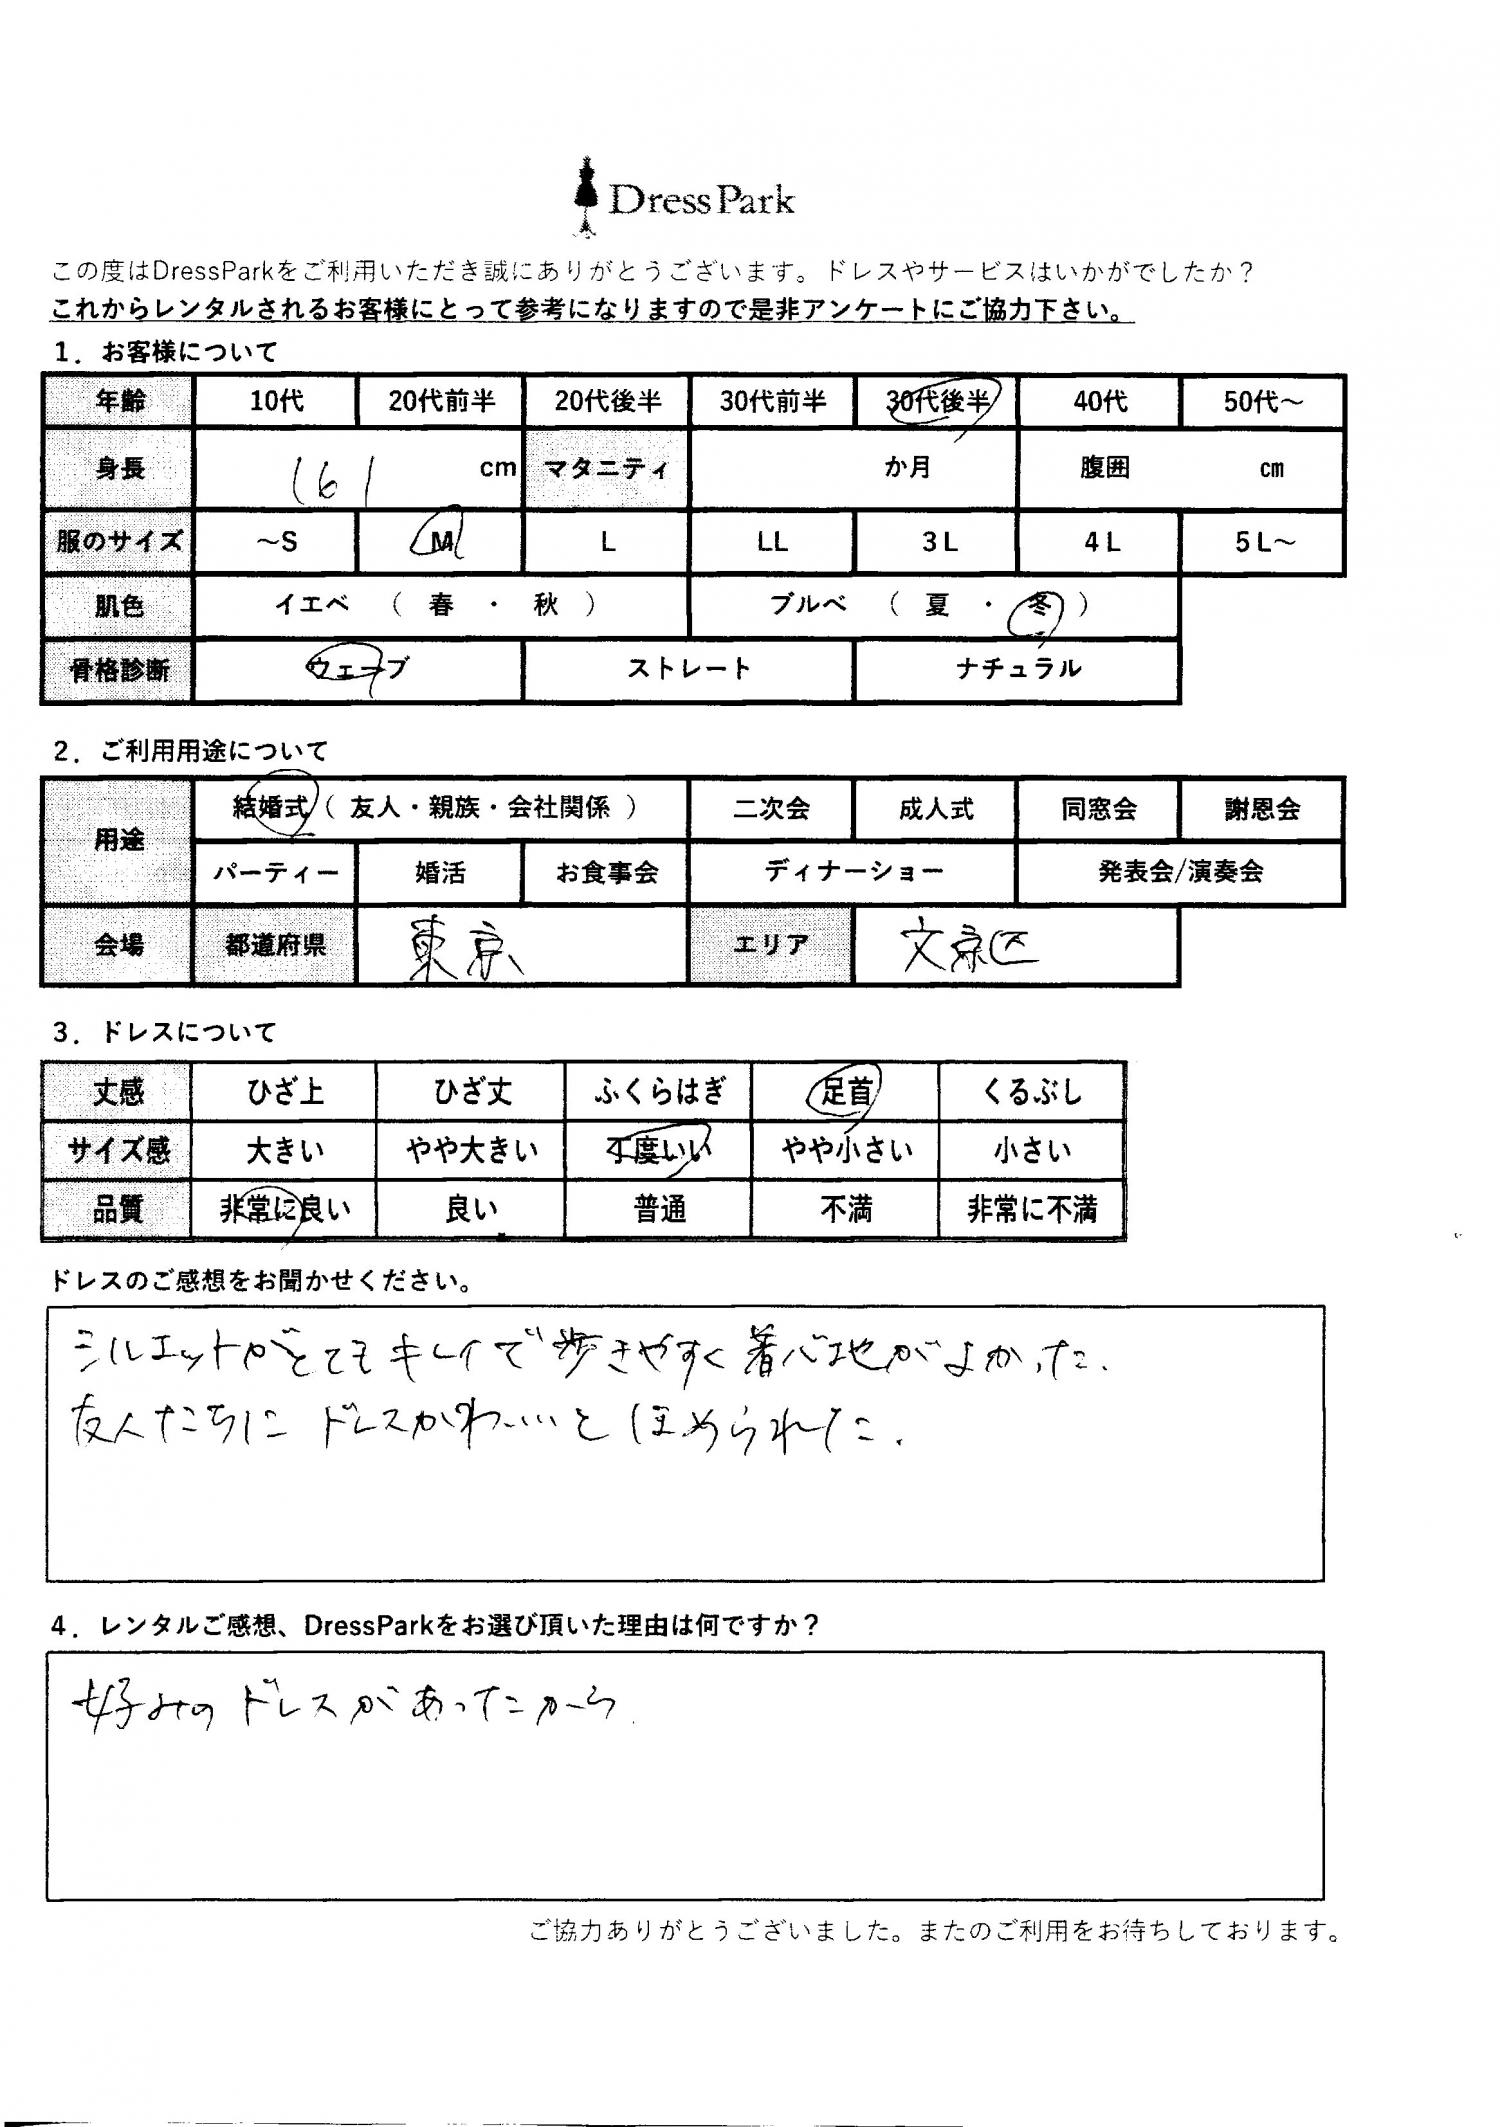 DressPark
この度はDressParkをご利用いただき誠にありがとうございます。ドレスやサービスはいかがでしたか？
これからレンタルされるお客様にとって参考になりますので是非アンケートにご協力下さい。
1．お客様について
年齢 10代 20代前半 20代後半 30代前半 30代後半 40代 50代～
身長 161 cm マタニティ か月 腹囲 cm
服のサイズ ～S M L LL 3L 4L 5L～
肌色 イエベ （ 春 ・ 秋 ） ブルベ （ 夏 ・ 冬 ）
骨格診断 ウェーブ ストレート ナチュラル
2．ご利用用途について
用途 結婚式（ 友人・親族・会社関係 ） 二次会 成人式 同窓会 謝恩会
パーティー 婚活 お食事会 ディナーショー 発表会/演奏会
会場 都道府県 東京 エリア 文京区
3．ドレスについて
丈感 ひざ上 ひざ丈 ふくらはぎ 足首 くるぶし
サイズ感 大きい やや大きい 丁度いい やや小さい 小さい
品質 非常に良い 良い 普通 不満 非常に不満
ドレスのご感想をお聞かせください。
シルエットがとてもキレイで歩きやすく着心地がよかった.
友人たちにドレスかわいいとほめられた.
4．レンタルご感想、DressParkをお選び頂いた理由は何ですか？
好みのドレスがあったから
ご協力ありがとうございました。またのご利用をお待ちしております。